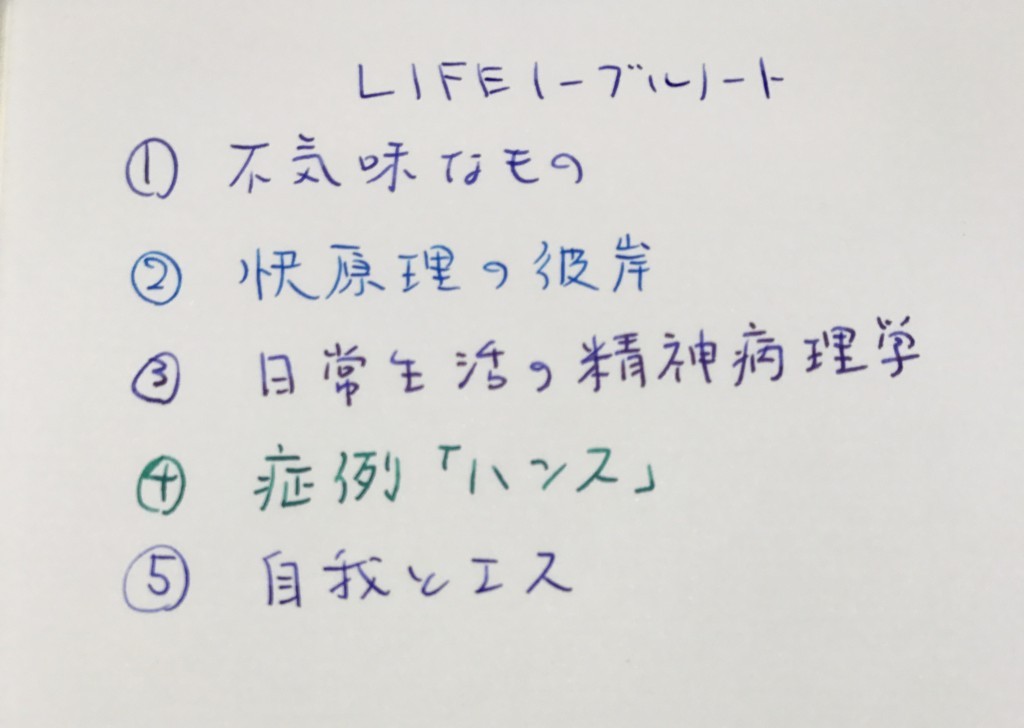 LIFEノーブルノート
① 不気味なもの
② 快原理の彼岸
③ 日常生活の精神病理学
④ 症例「ハンス」
⑤ 自我とエス